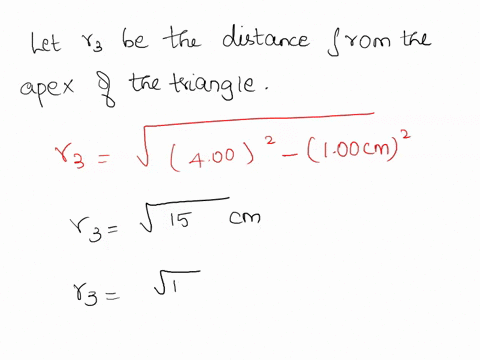 Let r3 be the distance from the
apex of the triangle.
r3 = √(4.00)² − (1.00cm)²
r3 = √15 cm
r3 = √1